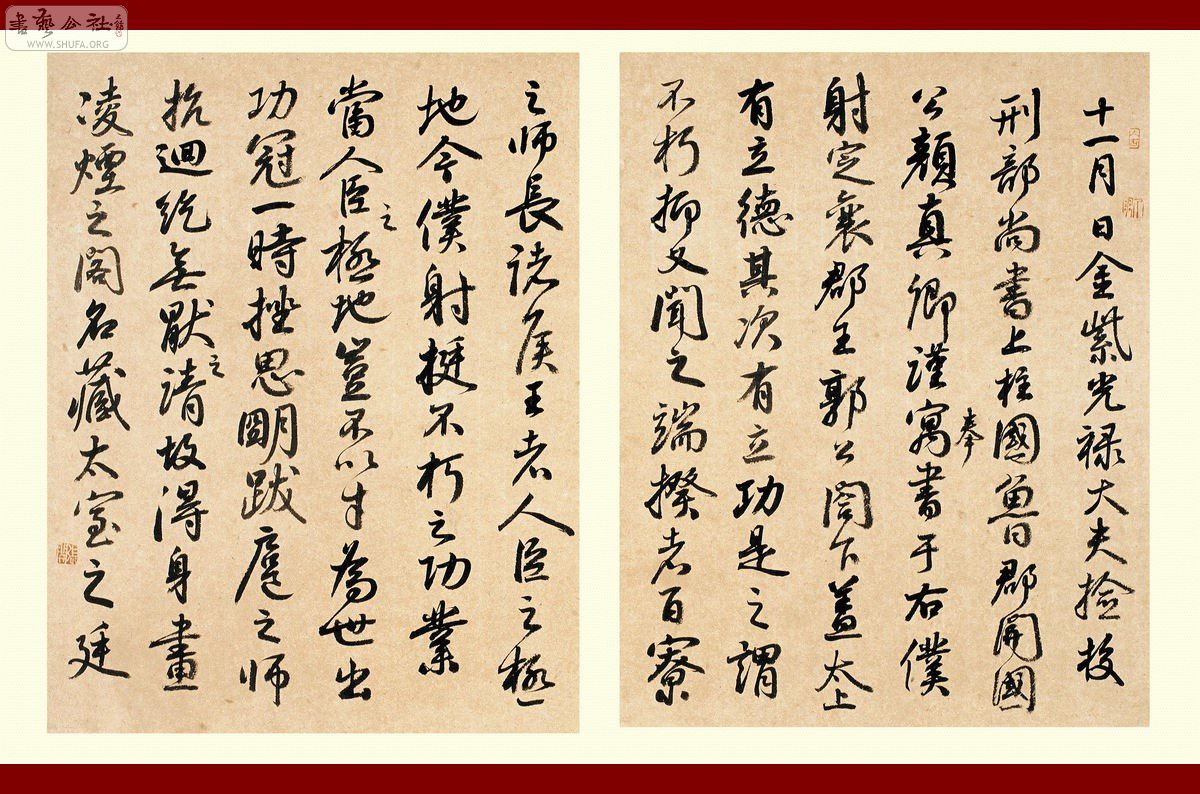 書藝公社
WWW.SHUFA.ORG
十一月日金紫光禄大夫撿挍
刑部尚書上柱國魯郡開國
公顔真卿謹奉寓書于右僕
射定襄郡王郭公閤下蓋太上
有立德其次有立功是之謂
不朽抑又聞之端揆者百寮
之師長諸侯王者人臣之極
地今僕射挺不朽之功業
當人臣之極地豈不以才為世出
功冠一時挫思朙跋扈之師
抗迴紇無厭之請故得身畫
凌煙之閣名藏太室之廷